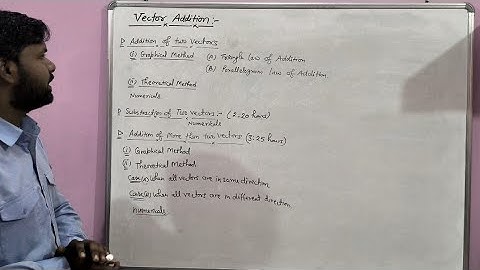 Vector Addition:-
▷ Addition of two vectors
(i) Graphical Method (A) Triangle law of Addition
(B) Parallelogram law of Addition
(ii) Theoretical Method
Numericals
▷ Subtraction of Two vectors:- (2:20 hours)
Numericals
▷ Addition of More than two vectors (3:25 hours)
(i) Graphical Method
(ii) Theoretical Method
Case(a) When all vectors are in same direction
Case(b) When all vectors are in different direction
Numericals